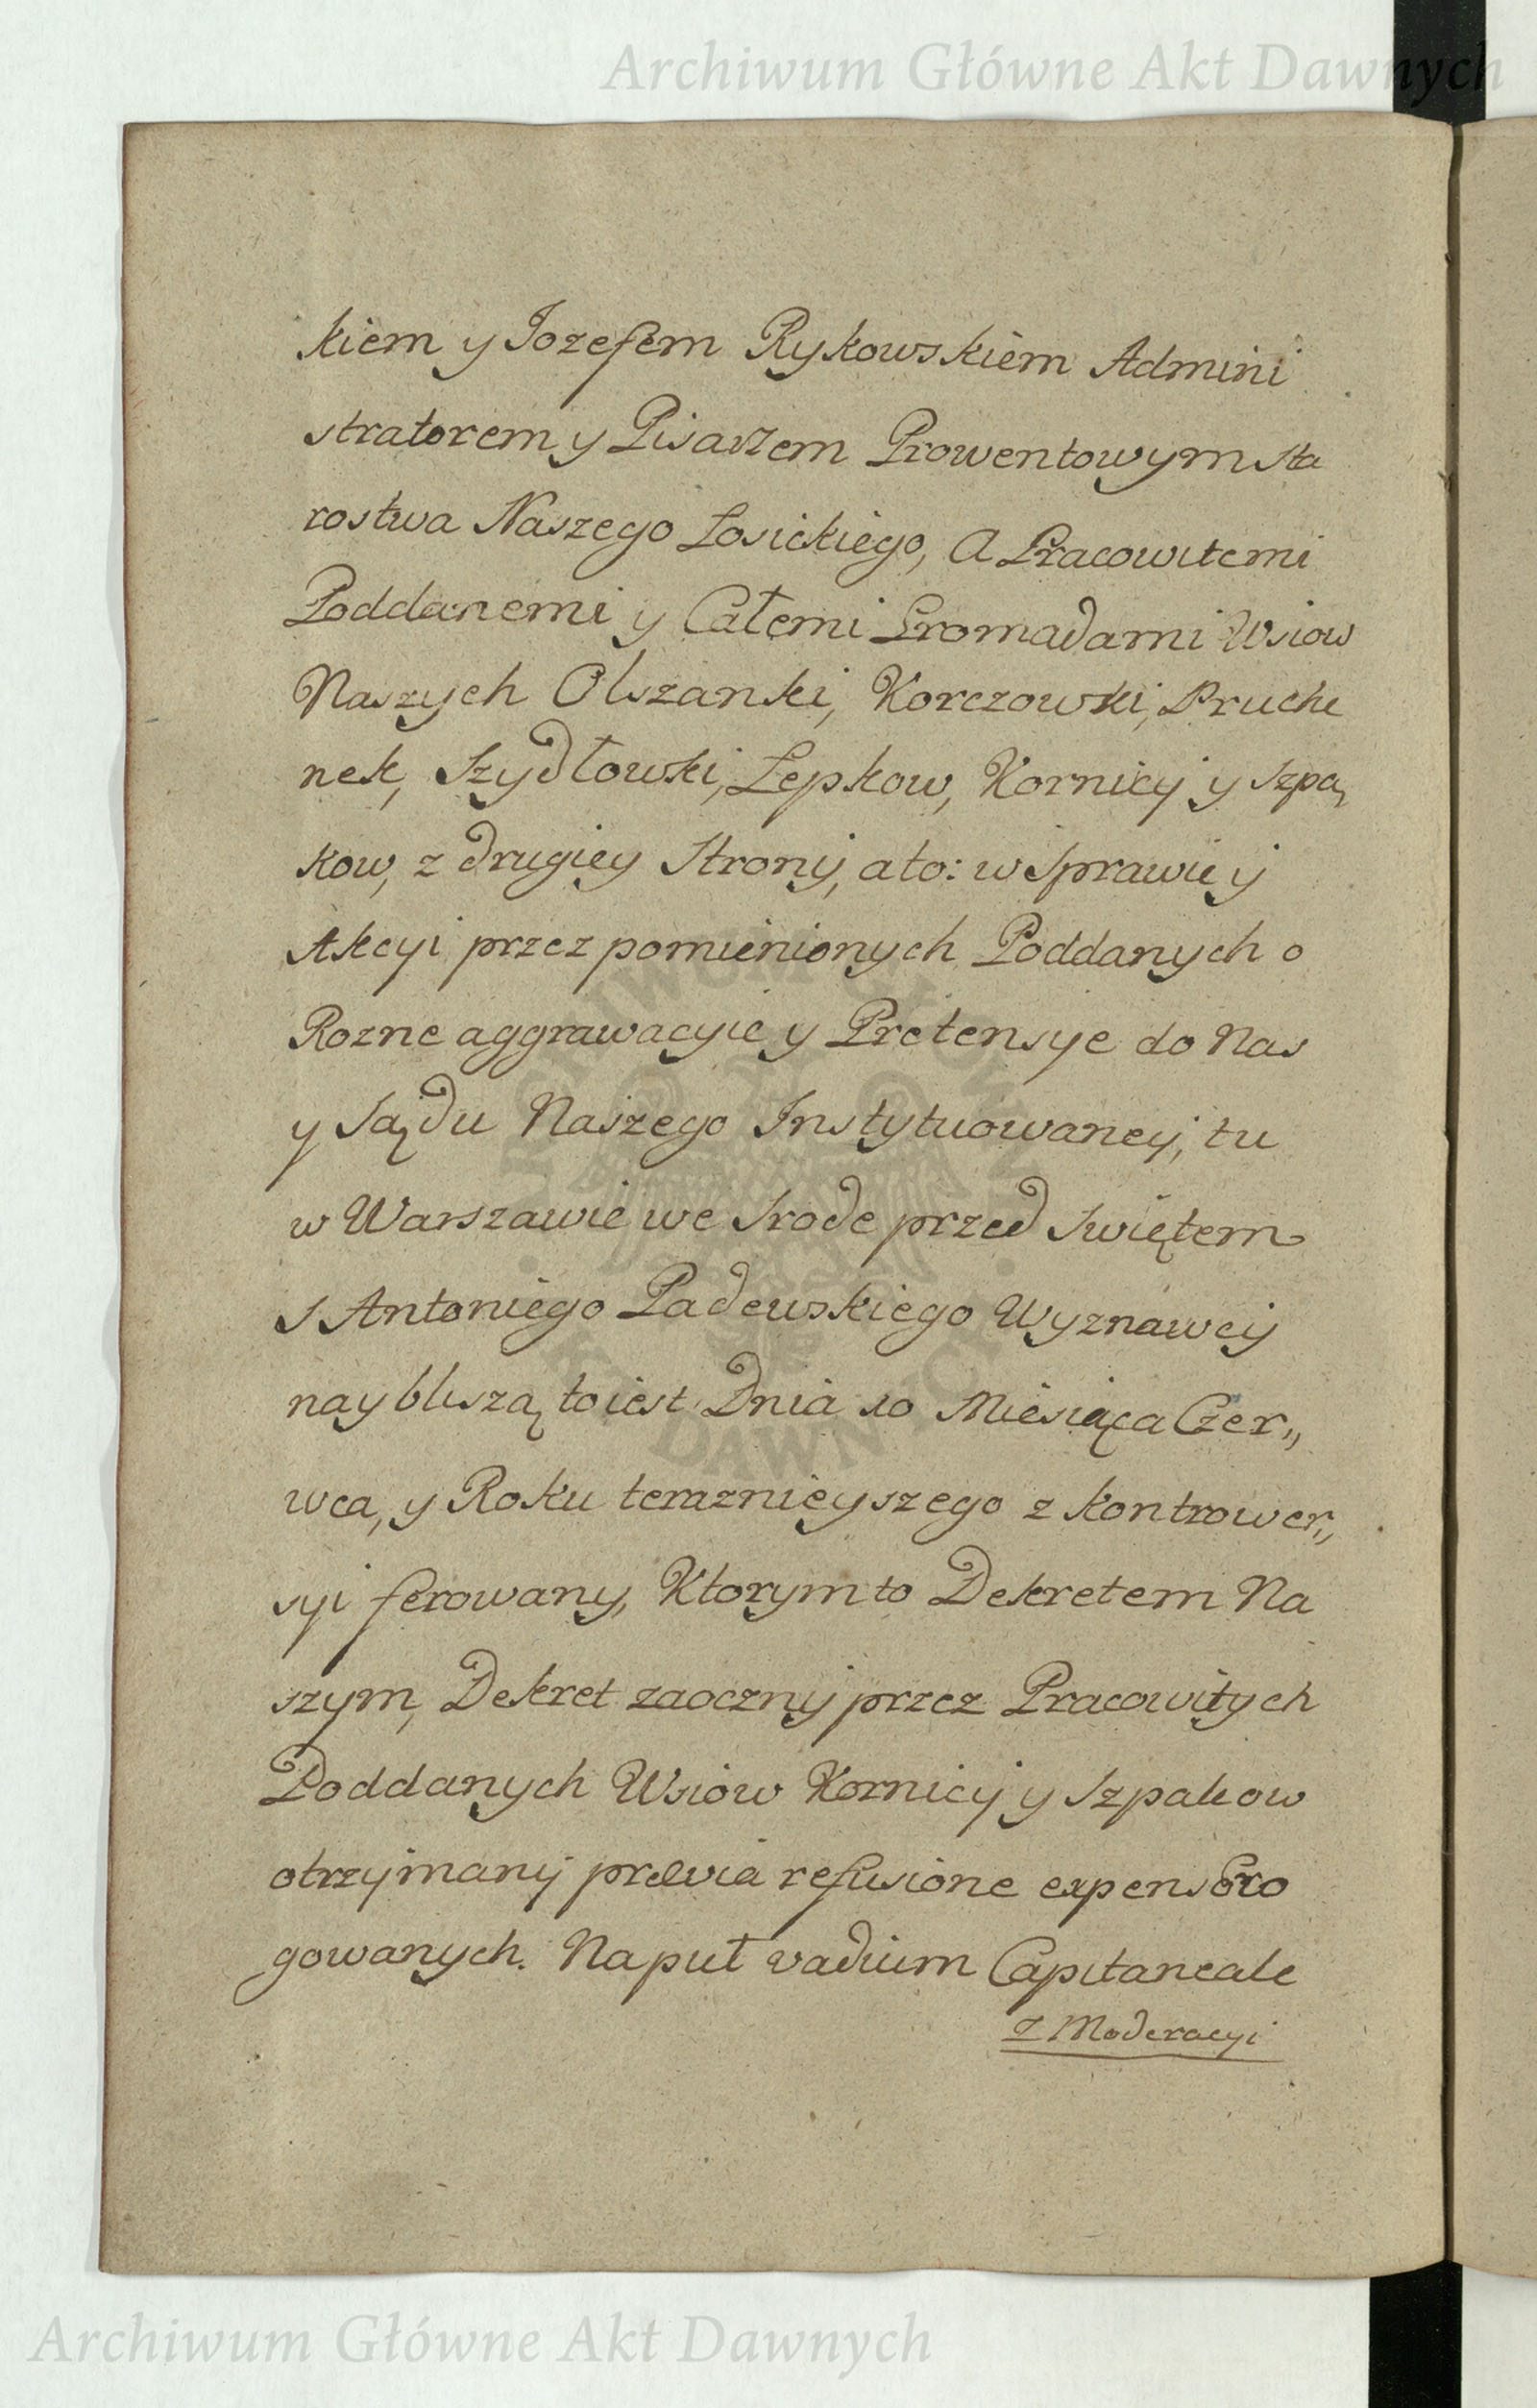 Archiwum Główne Akt Dawnych
kiem y Jozefem Rykowskiem Admini
stratorem y Pisarzem Prowentowym Sta
rostwa Naszego Łosickiego, A Pracowitemi
Poddanemi y Całemi Gromadami Wsiow
Naszych Olszanki, Korczowki, Pruche
nek, Szydłowki, Łepkow, Kornicy y Szpa,
kow, z drugiey Strony, ato: w Sprawie y
Akcyi przez pomienionych Poddanych o
Rozne aggrawacyie y Pretensye do Nas
y Sądu Naszego Instytuowaney, tu
w Warszawie we Srode przed Swiętem
S Antoniego Padewskiego Wyznawcy
naybliszą toiest Dnia 10 Miesiąca Czer,,
wca, y Roku teraznieyszego z kontrower,,
syi ferowany, Ktorym to Dekretem Na
szym, Dekret zaoczny przez Pracowitych
Poddanych Wsiow Kornicy y Szpakow
otrzymany prævia refusione expens Ero
gowanych. Na puł vadium Capitaneale
z Moderacyi
Archiwum Główne Akt Dawnych